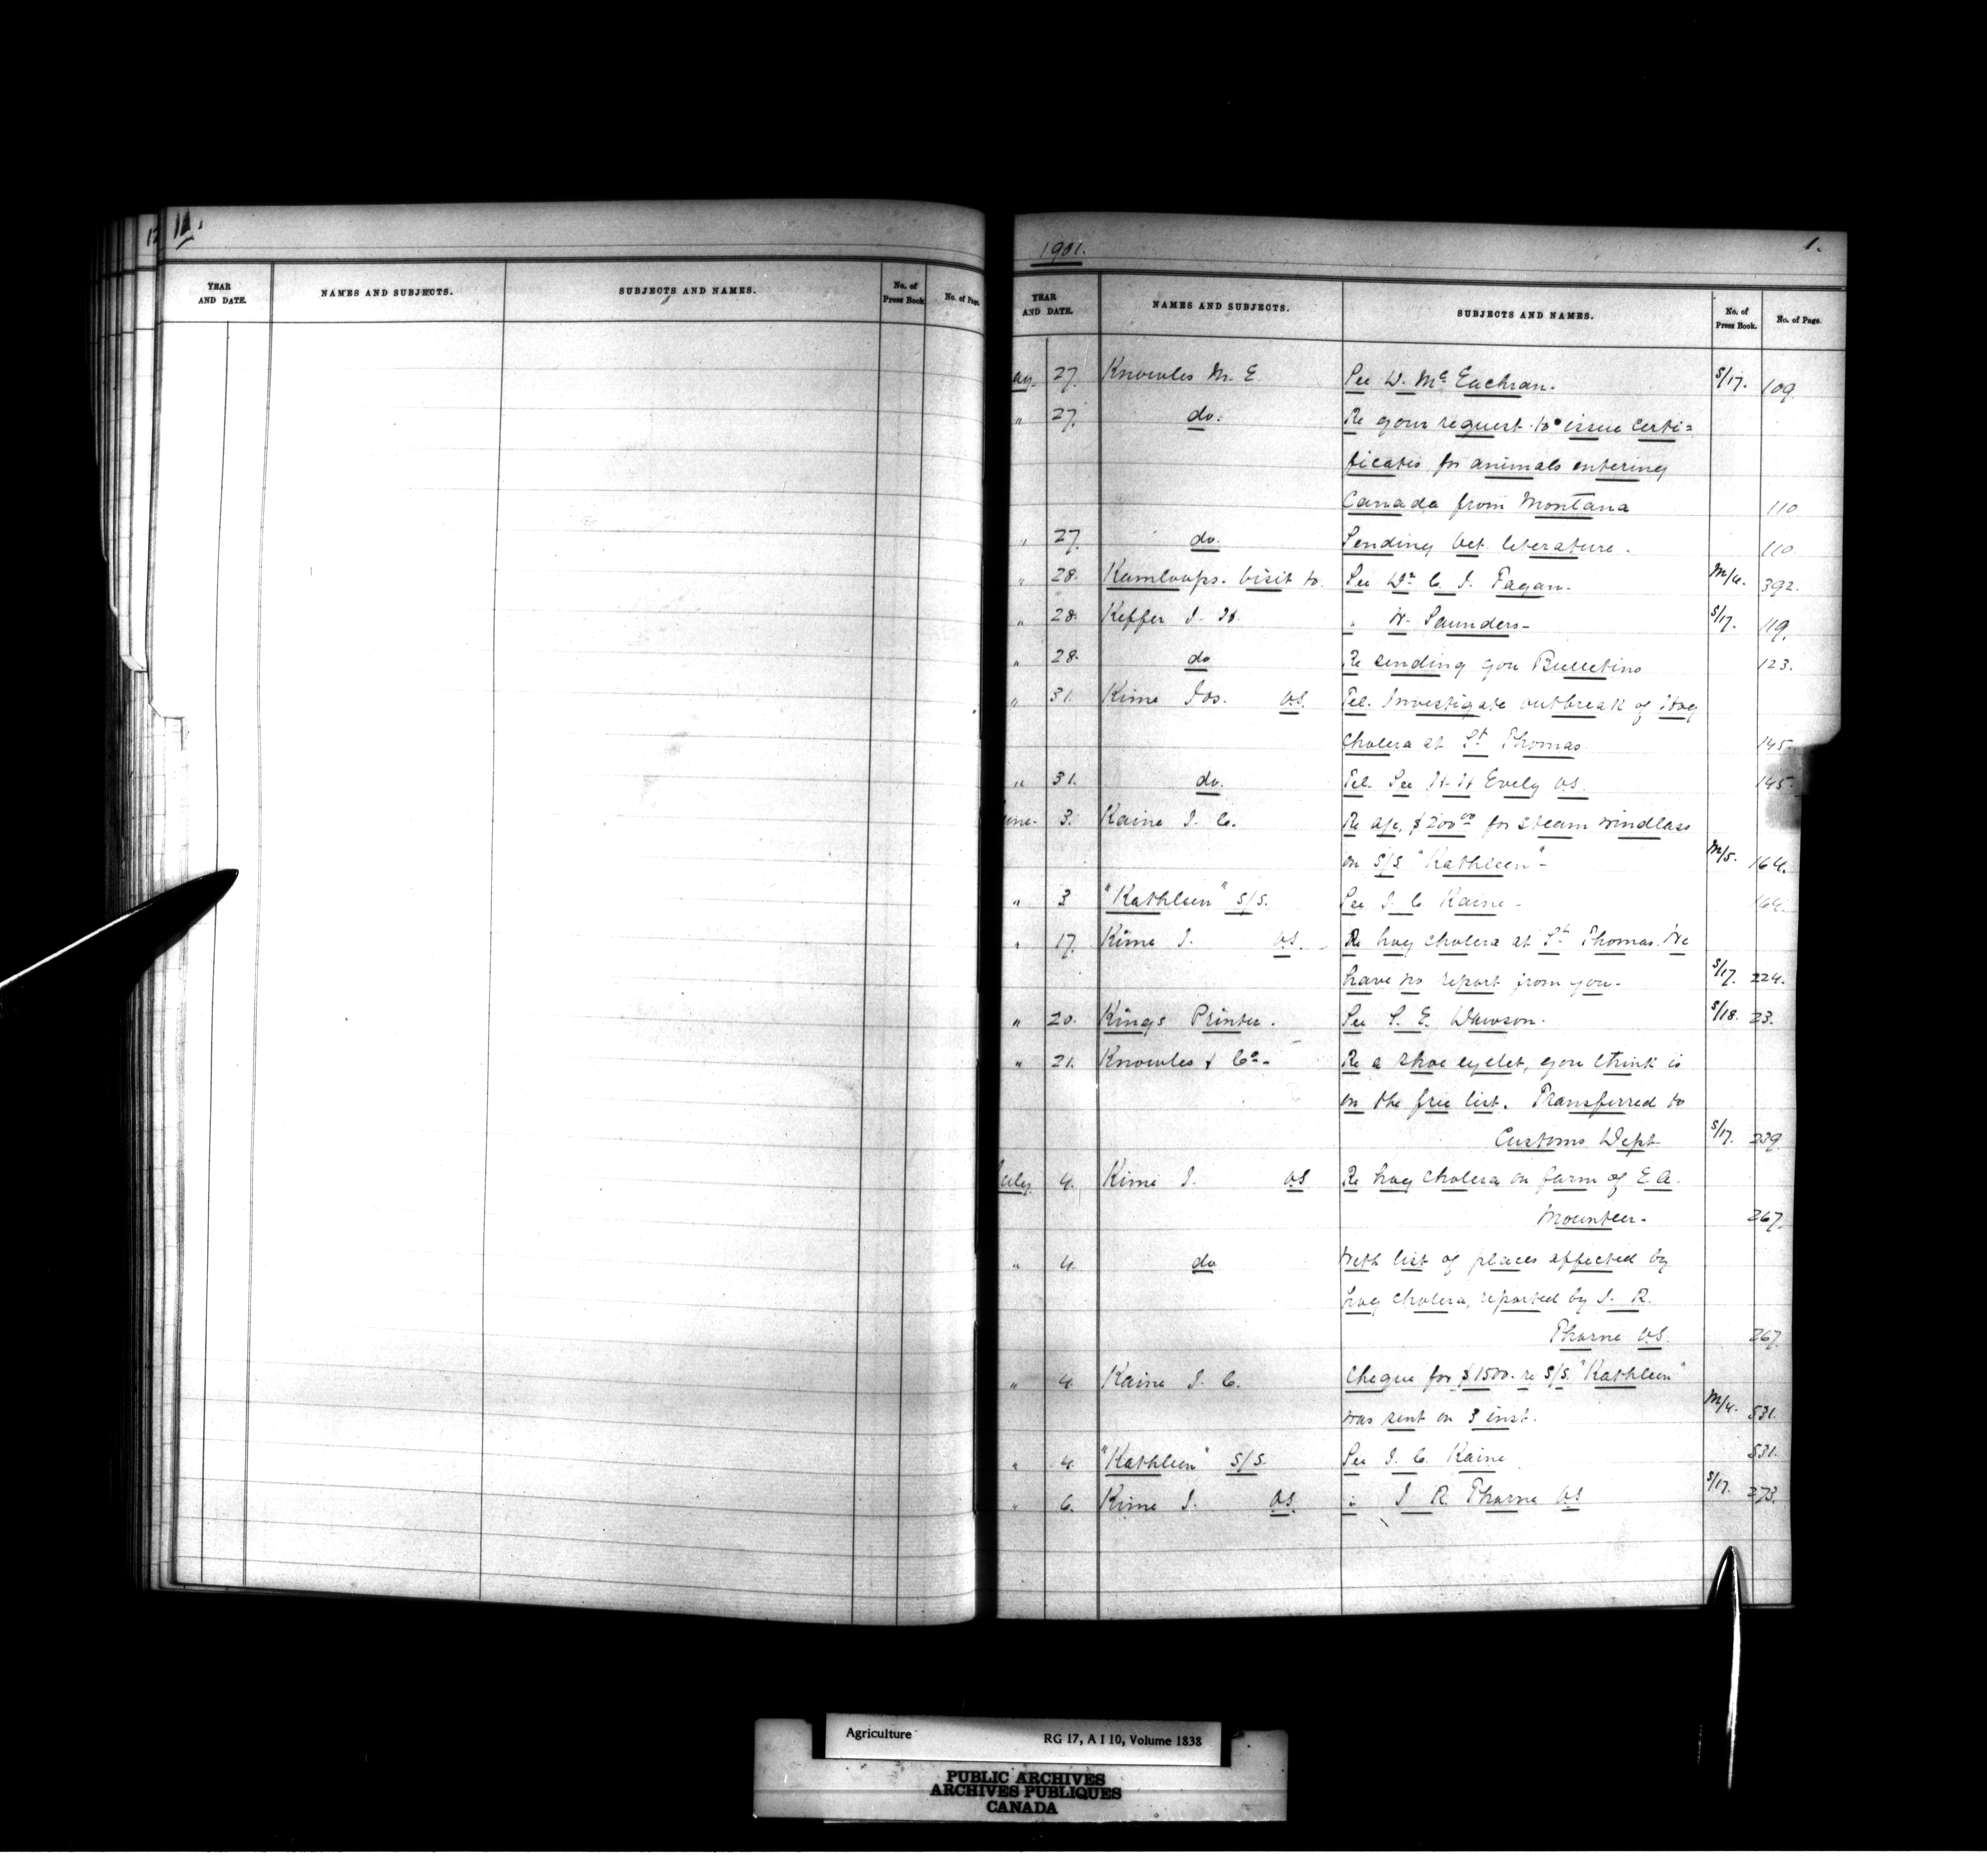 11.
YEAR AND DATE. NAMES AND SUBJECTS. SUBJECTS AND NAMES. No. of Press Book No. of Page
1901. 1.
YEAR AND DATE. NAMES AND SUBJECTS. SUBJECTS AND NAMES. No. of Press Book. No. of Page.
ay. 27. Knowles M. E. See D. McEachran. S/17. 109.
" 27. do. Re your request to issue certi=
ficates for animals entering
Canada from Montana 110
" 27. do. Sending vet. literature. 110
" 28. Kamloops. Visit to. See Dr. C. J. Fagan. M/4. 392.
" 28. Keffer J. H. " W. Saunders- S/17. 119.
" 28. do Re sending you Bulletins 123.
" 31. Kime Jos. V.S. Tel. Investigate outbreak of Hog
Cholera at St Thomas. 145.
" 31. do. Tel. See H. H Evely V.S. 145.
une. 3. Kaine J. C. Re a/c, $200.00 for steam windlass
on S/S. "Kathleen"- M/5. 164.
" 3 "Kathleen" S/S. See J. C Kaine - 164.
" 17. Kime J. V.S. Re hog cholera at St Thomas. We
have no report from you- S/17. 224.
" 20. Kings Printer. See S. E. Dawson. S/18. 23.
" 21. Knowles & Co- Re a shoe eyelet, you think is
on the free list. Transferred to
Customs Dept S/17. 239.
uly. 4. Kime J. V.S Re hog cholera on farm of E. A.
Mounteer. 267.
" 4. do With list of places affected by
hog cholera, reported by J. R.
Thorne V.S. 267.
" 4. Kaine J. C. Cheque for $1500. re S/S. "Kathleen"
was sent on 3 inst. M/4. 531.
" 4. "Kathleen" S/S. See J. C. Kaine 531.
" 6. Kime J. V.S. " J. R. Thorne V.S S/17. 273.
Agriculture RG 17, A I 10, Volume 1838
PUBLIC ARCHIVES
ARCHIVES PUBLIQUES
CANADA